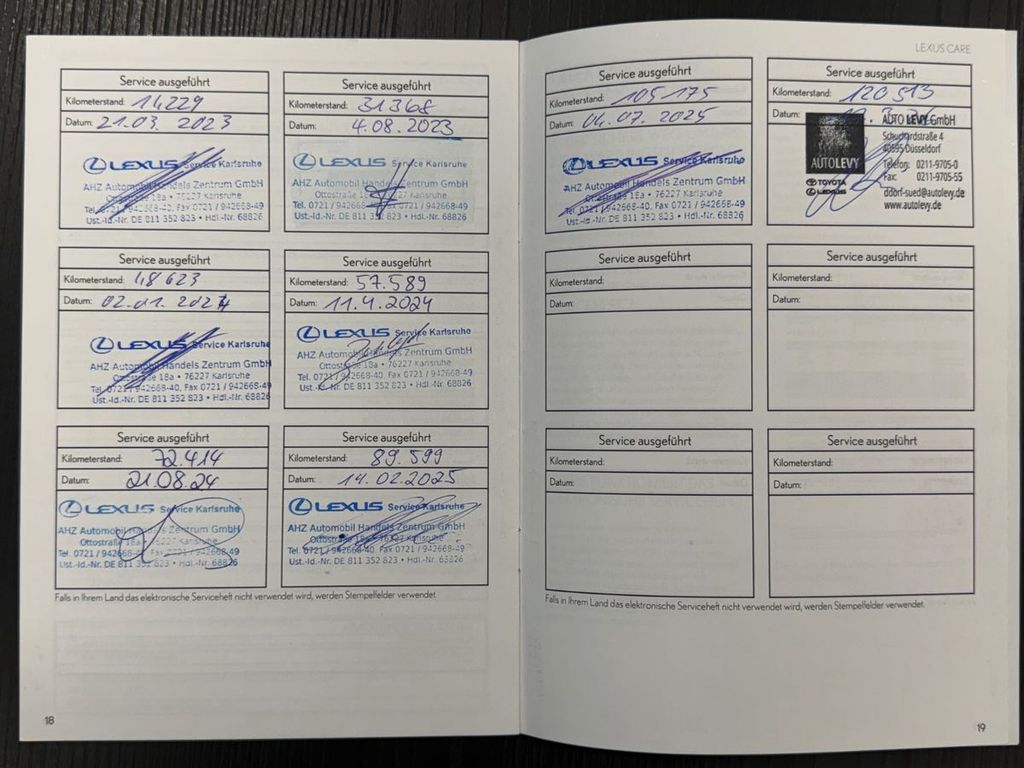 Service ausgeführt
Kilometerstand: 14229
Datum: 21.03. 2023
LEXUS Service Karlsruhe
AHZ Automobil Handels Zentrum GmbH
Ottostraße 18a • 76227 Karlsruhe
Tel. 0721 / 942668-40, Fax 0721 / 942668-49
Ust.-Id.-Nr. DE 811 352 823 • Hdl.-Nr. 68826
Service ausgeführt
Kilometerstand: 31368
Datum: 4.08.2023
LEXUS Service Karlsruhe
AHZ Automobil Handels Zentrum GmbH
Ottostraße 18a • 76227 Karlsruhe
Tel. 0721 / 942668-40, Fax 0721 / 942668-49
Ust.-Id.-Nr. DE 811 352 823 • Hdl.-Nr. 68826
Service ausgeführt
Kilometerstand: 48623
Datum: 02.01. 2024
LEXUS Service Karlsruhe
AHZ Automobil Handels Zentrum GmbH
Ottostraße 18a • 76227 Karlsruhe
Tel. 0721 / 942668-40, Fax 0721 / 942668-49
Ust.-Id.-Nr. DE 811 352 823 • Hdl.-Nr. 68826
Service ausgeführt
Kilometerstand: 57.589
Datum: 11.4.2024
LEXUS Service Karlsruhe
AHZ Automobil Handels Zentrum GmbH
Ottostraße 18a • 76227 Karlsruhe
Tel. 0721 / 942668-40, Fax 0721 / 942668-49
Ust.-Id.-Nr. DE 811 352 823 • Hdl.-Nr. 68826
Service ausgeführt
Kilometerstand: 72.414
Datum: 21.08.24
LEXUS Service Karlsruhe
AHZ Automobil Handels Zentrum GmbH
Ottostraße 18a • 76227 Karlsruhe
Tel. 0721 / 942668-40, Fax 0721 / 942668-49
Ust.-Id.-Nr. DE 811 352 823 • Hdl.-Nr. 68826
Service ausgeführt
Kilometerstand: 89.599
Datum: 14.02.2025
LEXUS Service Karlsruhe
AHZ Automobil Handels Zentrum GmbH
Ottostraße 18a • 76227 Karlsruhe
Tel. 0721 / 942668-40, Fax 0721 / 942668-49
Ust.-Id.-Nr. DE 811 352 823 • Hdl.-Nr. 68826
Falls in Ihrem Land das elektronische Serviceheft nicht verwendet wird, werden Stempelfelder verwendet.
18
LEXUS CARE
Service ausgeführt
Kilometerstand: 105 175
Datum: 04.07. 2025
LEXUS Service Karlsruhe
AHZ Automobil Handels Zentrum GmbH
Ottostraße 18a • 76227 Karlsruhe
Tel. 0721 / 942668-40, Fax 0721 / 942668-49
Ust.-Id.-Nr. DE 811 352 823 • Hdl.-Nr. 68826
Service ausgeführt
Kilometerstand: 120 513
Datum:
AUTO LEVY GmbH
Schuckardstraße 4
40595 Düsseldorf
Telefon: 0211-9705-0
Fax: 0211-9705-55
ddorf-sued@autolevy.de
www.autolevy.de
AUTOLEVY
TOYOTA
LEXUS
Service ausgeführt
Kilometerstand:
Datum:
Service ausgeführt
Kilometerstand:
Datum:
Service ausgeführt
Kilometerstand:
Datum:
Service ausgeführt
Kilometerstand:
Datum:
Falls in Ihrem Land das elektronische Serviceheft nicht verwendet wird, werden Stempelfelder verwendet.
19